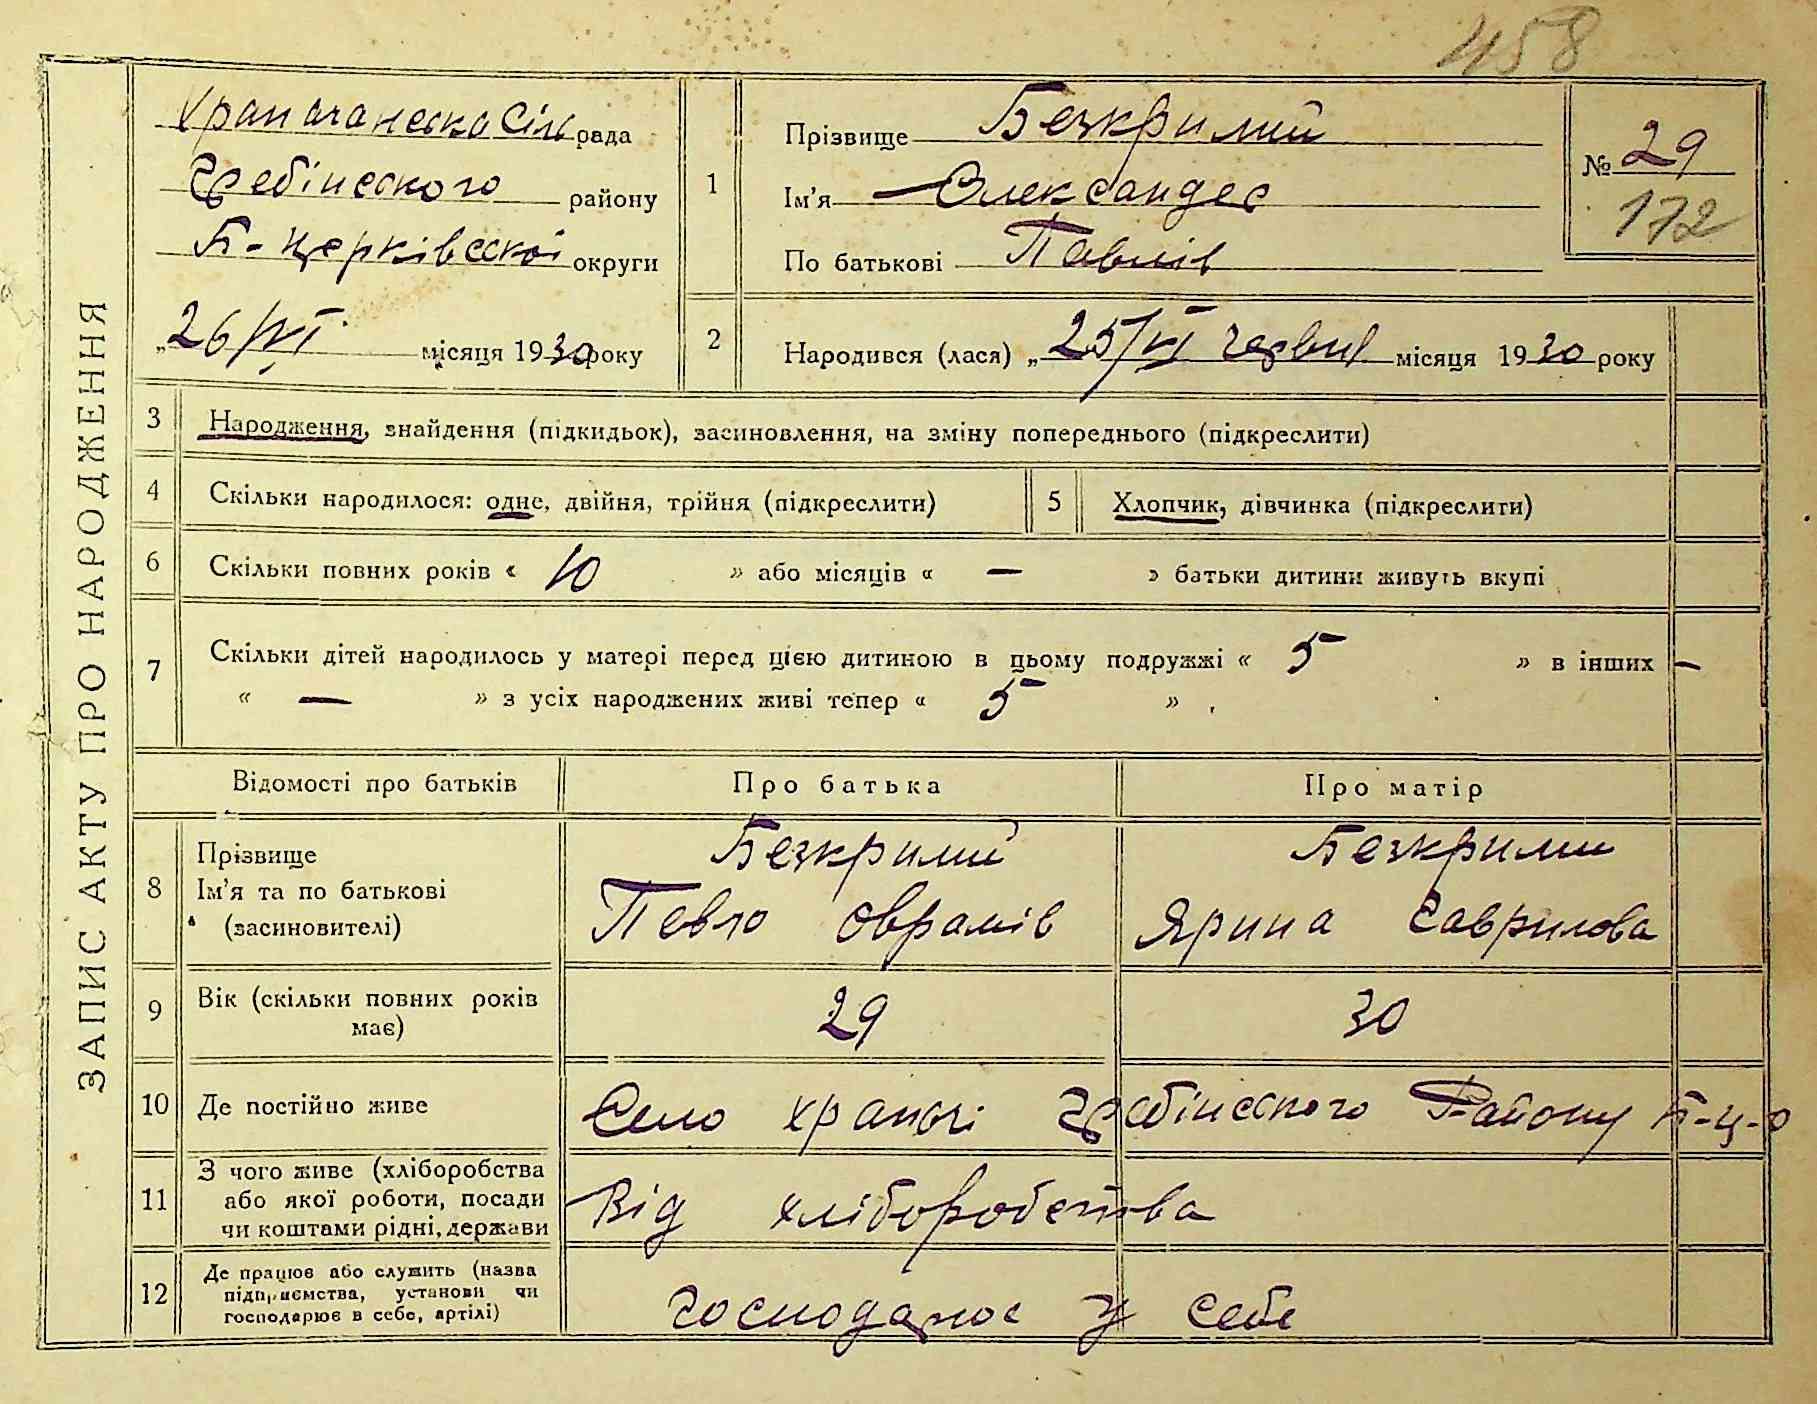 458
ЗАПИС АКТУ ПРО НАРОДЖЕННЯ
Храпачанська Сільрада
Гребінського району
Б-церківської округи
„26/VI місяця 1930 року
1 Прізвище Безкримий
Ім'я Олександер
По батькові Павлів
№ 29
172
2 Народився (лася) „25/VI червня місяця 1930 року
3 Народження, знайдення (підкидьок), засиновлення, на зміну попереднього (підкреслити)
4 Скільки народилося: одне, двійня, трійня (підкреслити)
5 Хлопчик, дівчинка (підкреслити)
6 Скільки повних років « 10 » або місяців « — » батьки дитини живуть вкупі
7 Скільки дітей народилось у матері перед цією дитиною в цьому подружжі « 5 » в інших —
« — » з усіх народжених живі тепер « 5 » ,
Відомості про батьків Про батька Про матір
8 Прізвище Безкримий Безкрими
Ім'я та по батькові Певло Оврамів Ярина Гаврилова
(засиновителі)
9 Вік (скільки повних років 29 30
має)
10 Де постійно живе Село храпачі Гребінського Району Б-ц-о
11 З чого живе (хліборобства Від хліборобства
або якої роботи, посади
чи коштами рідні, держави
12 Де працює або служить (назва господарює у себе
підприємства, установи чи
господарює в себе, артілі)